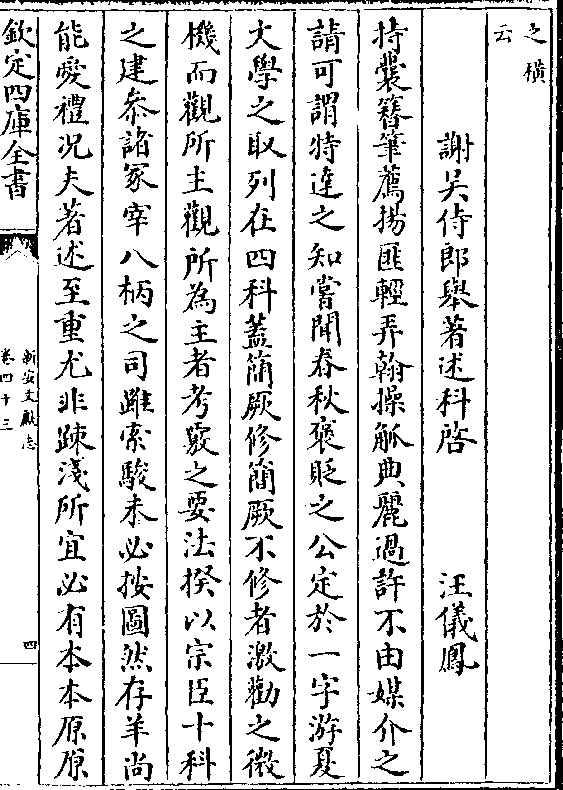 之橫
云
謝吴侍郎舉著述科啓　汪儀鳳
持囊簪筆薦揚匪輕弄翰操觚典麗過許不由媒介之
請可謂特達之知嘗聞春秋褒貶之公定於一字游夏
文學之取列在四科蓋簡厥修簡厥不修者激勸之微
機而觀所主觀所為主者考覈之要法揆以宗臣十科
之建叅諸冢宰八柄之司雖索駿未必按圖然存羊尚
能愛禮况夫著述至重尤非踈淺所宜必有本本原原
欽定四庫全書
新安文獻志
卷四十三
四